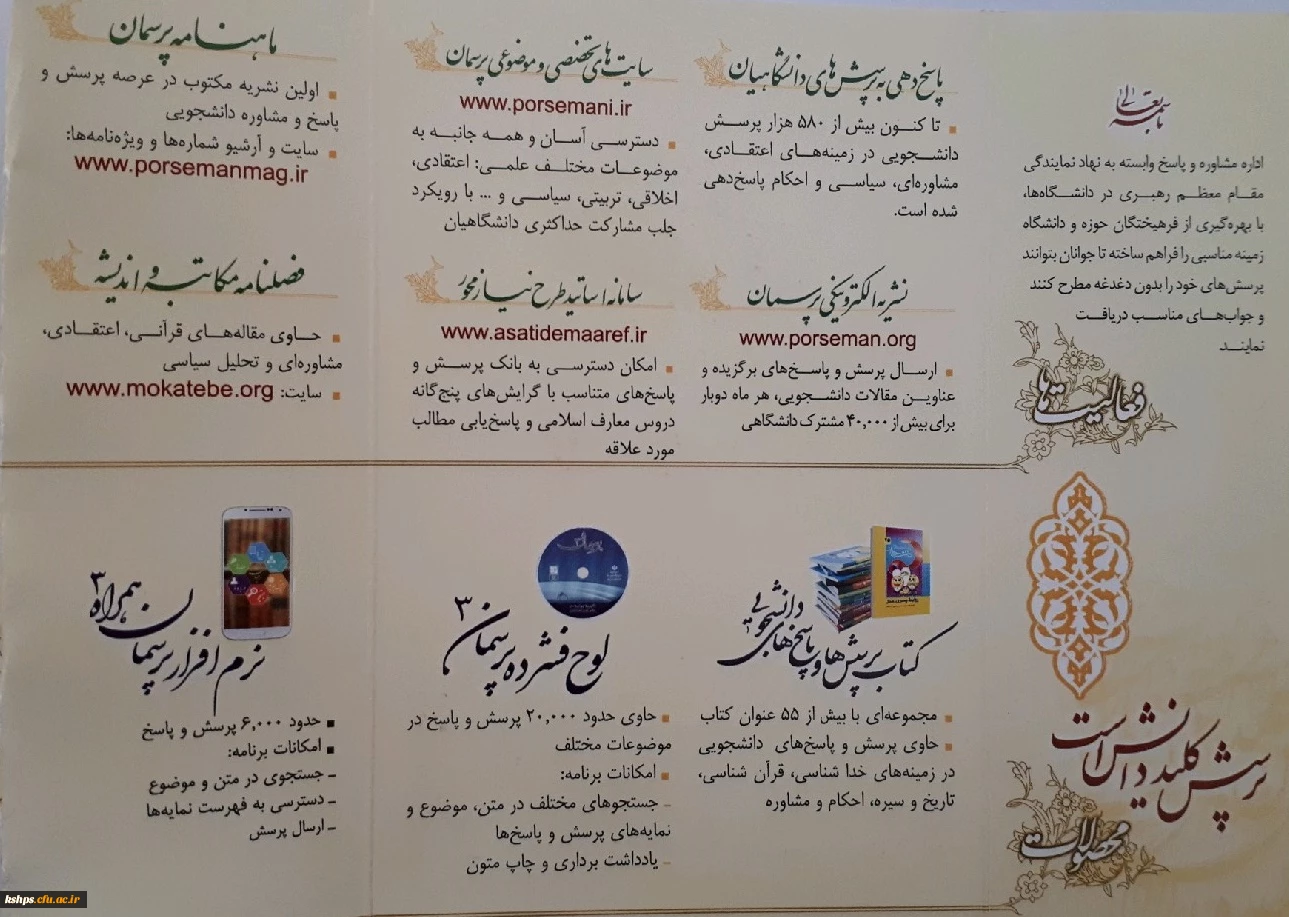 باسمه تعالی
اداره مشاوره و پاسخ وابسته به نهاد نمایندگی
مقام معظم رهبری در دانشگاه‌ها،
با بهره‌گیری از فرهیختگان حوزه و دانشگاه
زمینه مناسبی را فراهم ساخته تا جوانان بتوانند
پرسش‌های خود را بدون دغدغه مطرح کنند
و جواب‌های مناسب دریافت
نمایند
فعالیت‌ها
پاسخ‌دهی به پرسش‌های دانشگاهیان
تا کنون بیش از ۵۸۰ هزار پرسش
دانشجویی در زمینه‌های اعتقادی،
مشاوره‌ای، سیاسی و احکام پاسخ‌دهی
شده است.
نشریه الکترونیکی پرسمان
www.porseman.org
ارسال پرسش و پاسخ‌های برگزیده و
عناوین مقالات دانشجویی، هر ماه دوبار
برای بیش از ۴۰,۰۰۰ مشترک دانشگاهی
سایت‌های تخصصی و موضوعی پرسمان
www.porsemani.ir
دسترسی آسان و همه جانبه به
موضوعات مختلف علمی: اعتقادی،
اخلاقی، تربیتی، سیاسی و ... با رویکرد
جلب مشارکت حداکثری دانشگاهیان
سامانه اساتید طرح نیاز محور
www.asatidemaaref.ir
امکان دسترسی به بانک پرسش و
پاسخ‌های متناسب با گرایش‌های پنج‌گانه
دروس معارف اسلامی و پاسخ‌یابی مطالب
مورد علاقه
ماهنامه پرسمان
اولین نشریه مکتوب در عرصه پرسش و
پاسخ و مشاوره دانشجویی
سایت و آرشیو شماره‌ها و ویژه‌نامه‌ها:
www.porsemanmag.ir
فصلنامه مکاتبه و اندیشه
حاوی مقاله‌های قرآنی، اعتقادی،
مشاوره‌ای و تحلیل سیاسی
سایت: www.mokatebe.org
پرسش کلید دانش است
محصولات
کتاب پرسش‌ها و پاسخ‌های دانشجویی
مجموعه‌ای با بیش از ۵۵ عنوان کتاب
حاوی پرسش و پاسخ‌های دانشجویی
در زمینه‌های خدا شناسی، قرآن شناسی،
تاریخ و سیره، احکام و مشاوره
لوح فشرده پرسمان ۳
حاوی حدود ۲۰,۰۰۰ پرسش و پاسخ در
موضوعات مختلف
امکانات برنامه:
- جستجوهای مختلف در متن، موضوع و
نمایه‌های پرسش و پاسخ‌ها
- یادداشت برداری و چاپ متون
نرم افزار پرسمان همراه ۳
حدود ۶,۰۰۰ پرسش و پاسخ
امکانات برنامه:
- جستجوی در متن و موضوع
- دسترسی به فهرست نمایه‌ها
- ارسال پرسش
kshps.cfu.ac.ir